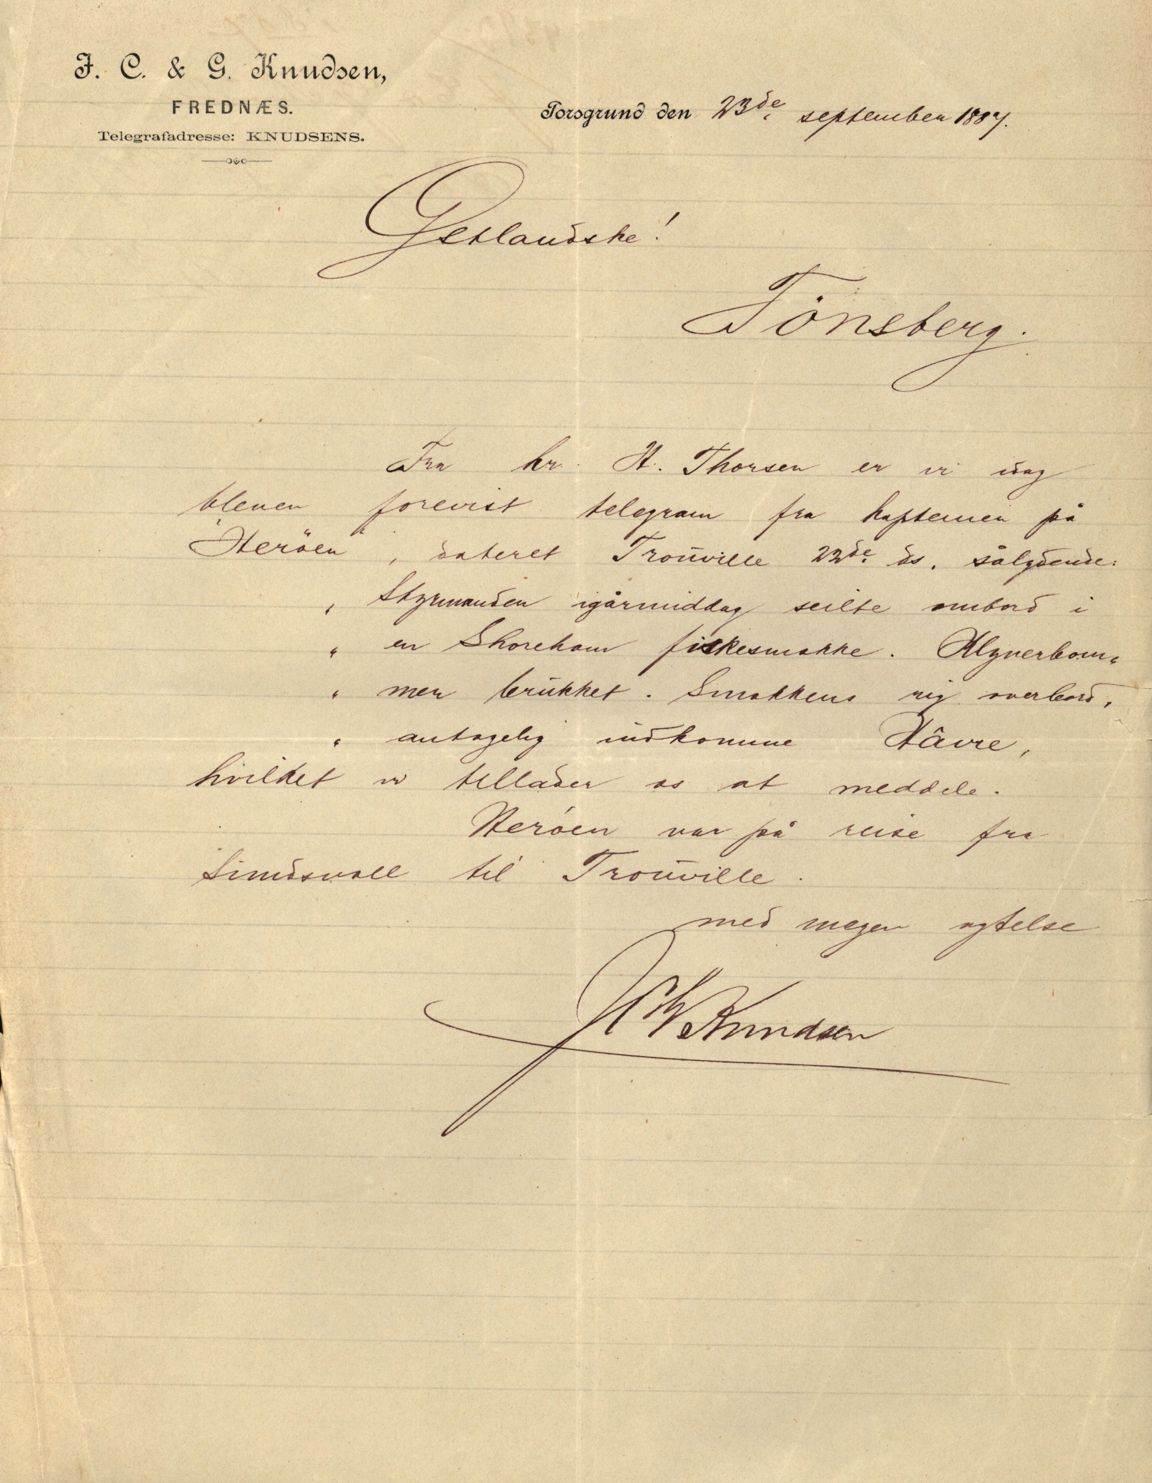 J. C. & G. Knudsen,
FREDNÆS.
Telegrafadresse: KNUDSENS.
Porsgrund den 23de september 1887.
Tönsberg.
Fra hr. H. Thorsen er vi idag
bleven forevist telegram fra kapteinen på
"Heröen", dateret Trouville 22de ds. sålydende:
" Styrmanden igårmiddag seilte ombord i
" en Shoreham fiskesmakke. Klyverbom-
" men brukket. Smakkens rig overbord,
" antagelig indkomme Hâvre,
hvilket vi tillader os at meddele.
Heröen var på reise fra
Sundsvall til Trouville.
med megen agtelse
Knudsen